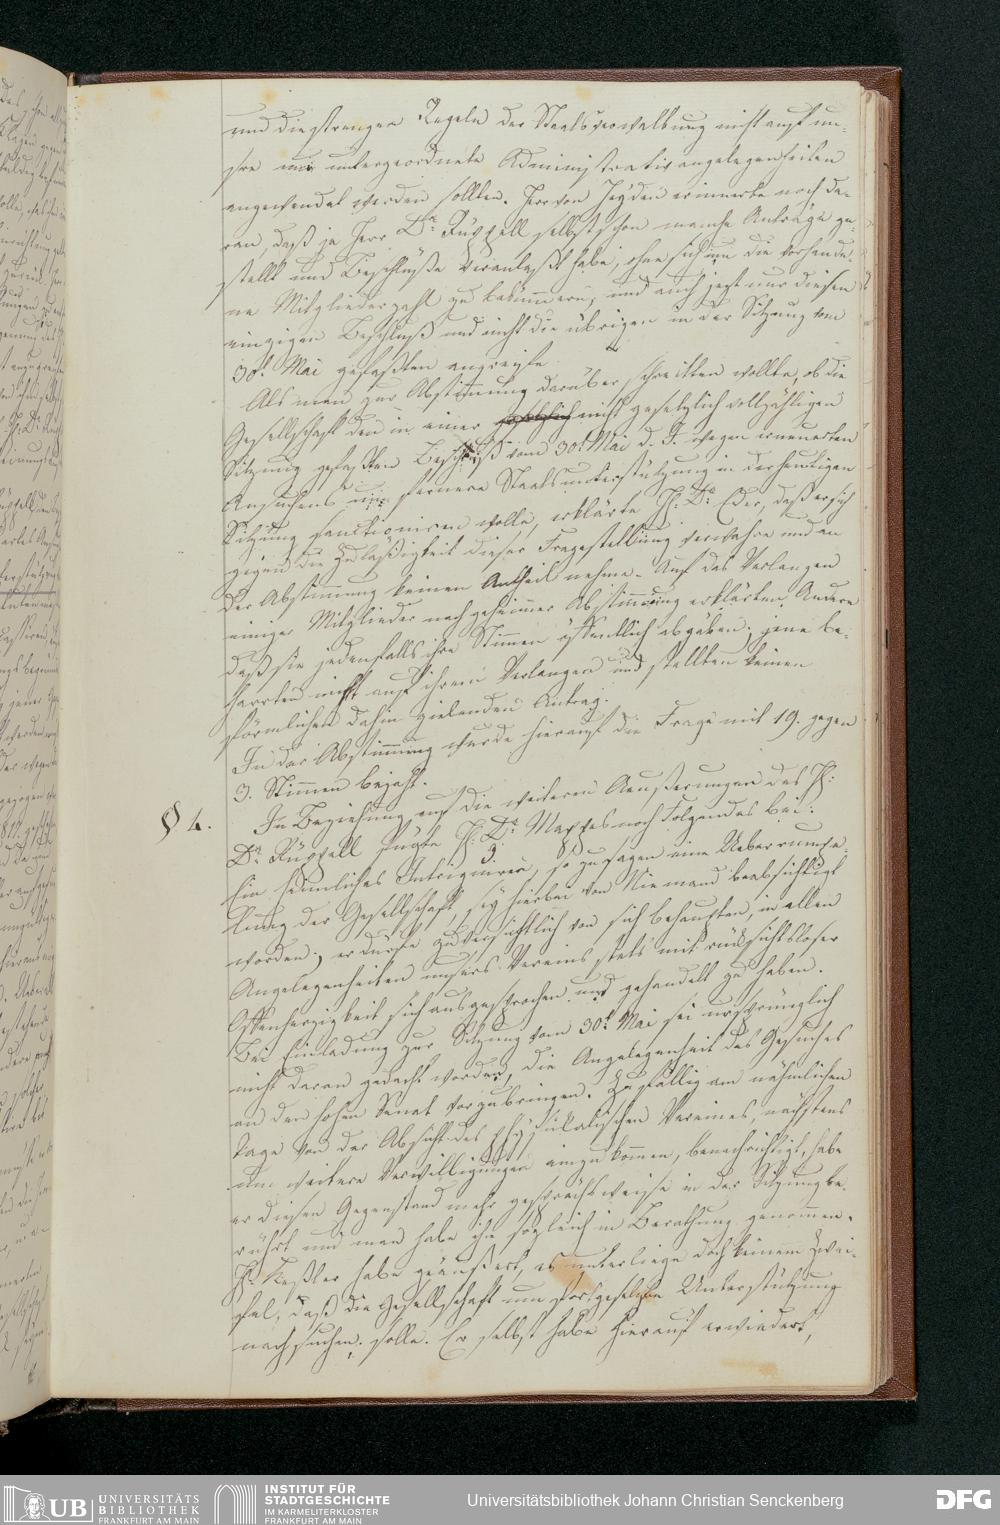 und die strengen Regeln der Staatsverwaltung nicht auf un-
sre nur untergeordnete Administrativangelegenheiten
angewendet werden sollten. Herr von Heyden erinnerte noch da-
ran, daß ja Herr Dr. Rüppell selbst schon manche Anträge ge-
stellt und Beschlüße veranlaßt habe, ohne sich um die vorhande-
ne Mitgliederzahl zu bekümmern, und auch jetzt nur diesen
einzigen Beschluß und nicht die übrigen in der Sitzung vom
30t Mai gefaßten angreife.
Als man zur Abstimmung darüber schreitten wollte, ob die
Gesellschaft den in einer nicht gesetzlich vollzähligen
Sitzung gefaßten Beschluß vom 30t Mai d. J. wegen erneuerten
Ansuchens um fernere Staatsunterstützung in der heutigen
Sitzung sanctioniren wolle, erklärte H: Dr. Eder, daß er sich
gegen die Zuläßigkeit dieser Fragestellung verwahre und an
der Abstimmung keinen Antheil nehme. Auf das Verlangen
einiger Mitglieder nach geheimer Abstimmung erklärten Andere
daß sie jedenfalls ihre Stimmen öffentlich abgäben; jene be-
harrten nicht auf ihrem Verlangen und stellten keinen
förmlichen dahin zielenden Antrag.
In der Abstimmung wurde hierauf die Frage mit 19 gegen
3. Stimmen bejaht.
§ 4. In Beziehung auf die weiteren Aeußerungen des H:
Dr. Rüppell fügte H: Dr. Mappes noch Folgendes bei:
Ein heimliches Intriguiren, so zu sagen eine Ueberrumpe-
lung der Gesellschaft, sey hierbei von Niemand beabsichtigt
worden; er dürfe zuversichtlich von sich behaupten, in allen
Angelegenheiten unsers Vereins stets mit rücksichtsloser
Offenherzigkeit sich ausgesprochen und gehandelt zu haben.
Bei Einladung zur Sitzung vom 30t Mai sei ursprünglich
nicht daran gedacht worden, die Angelegenheit des Gesuches
an den hohen Senat vorzubringen. Zufällig am nähmlichen
Tage von der Absicht des physikalischen Vereines, nächstens
um weitere Verwilligungen einzukommen, benachrichtigt, habe
er diesen Gegenstand mehr gesprächsweise in der Sitzung be-
rührt und man habe ihn sogleich in Berathung genommen.
H: Keßler habe geäußert, es unterliege doch keinem Zwei-
fel, daß die Gesellschaft um fortgesetzte Unterstützung
nachsuchen solle. Er selbst habe hierauf erwiedert,
UB UNIVERSITÄTS
BIBLIOTHEK
FRANKFURT AM MAIN
INSTITUT FÜR
STADTGESCHICHTE
IM KARMELITERKLOSTER
FRANKFURT AM MAIN
Universitätsbibliothek Johann Christian Senckenberg
DFG